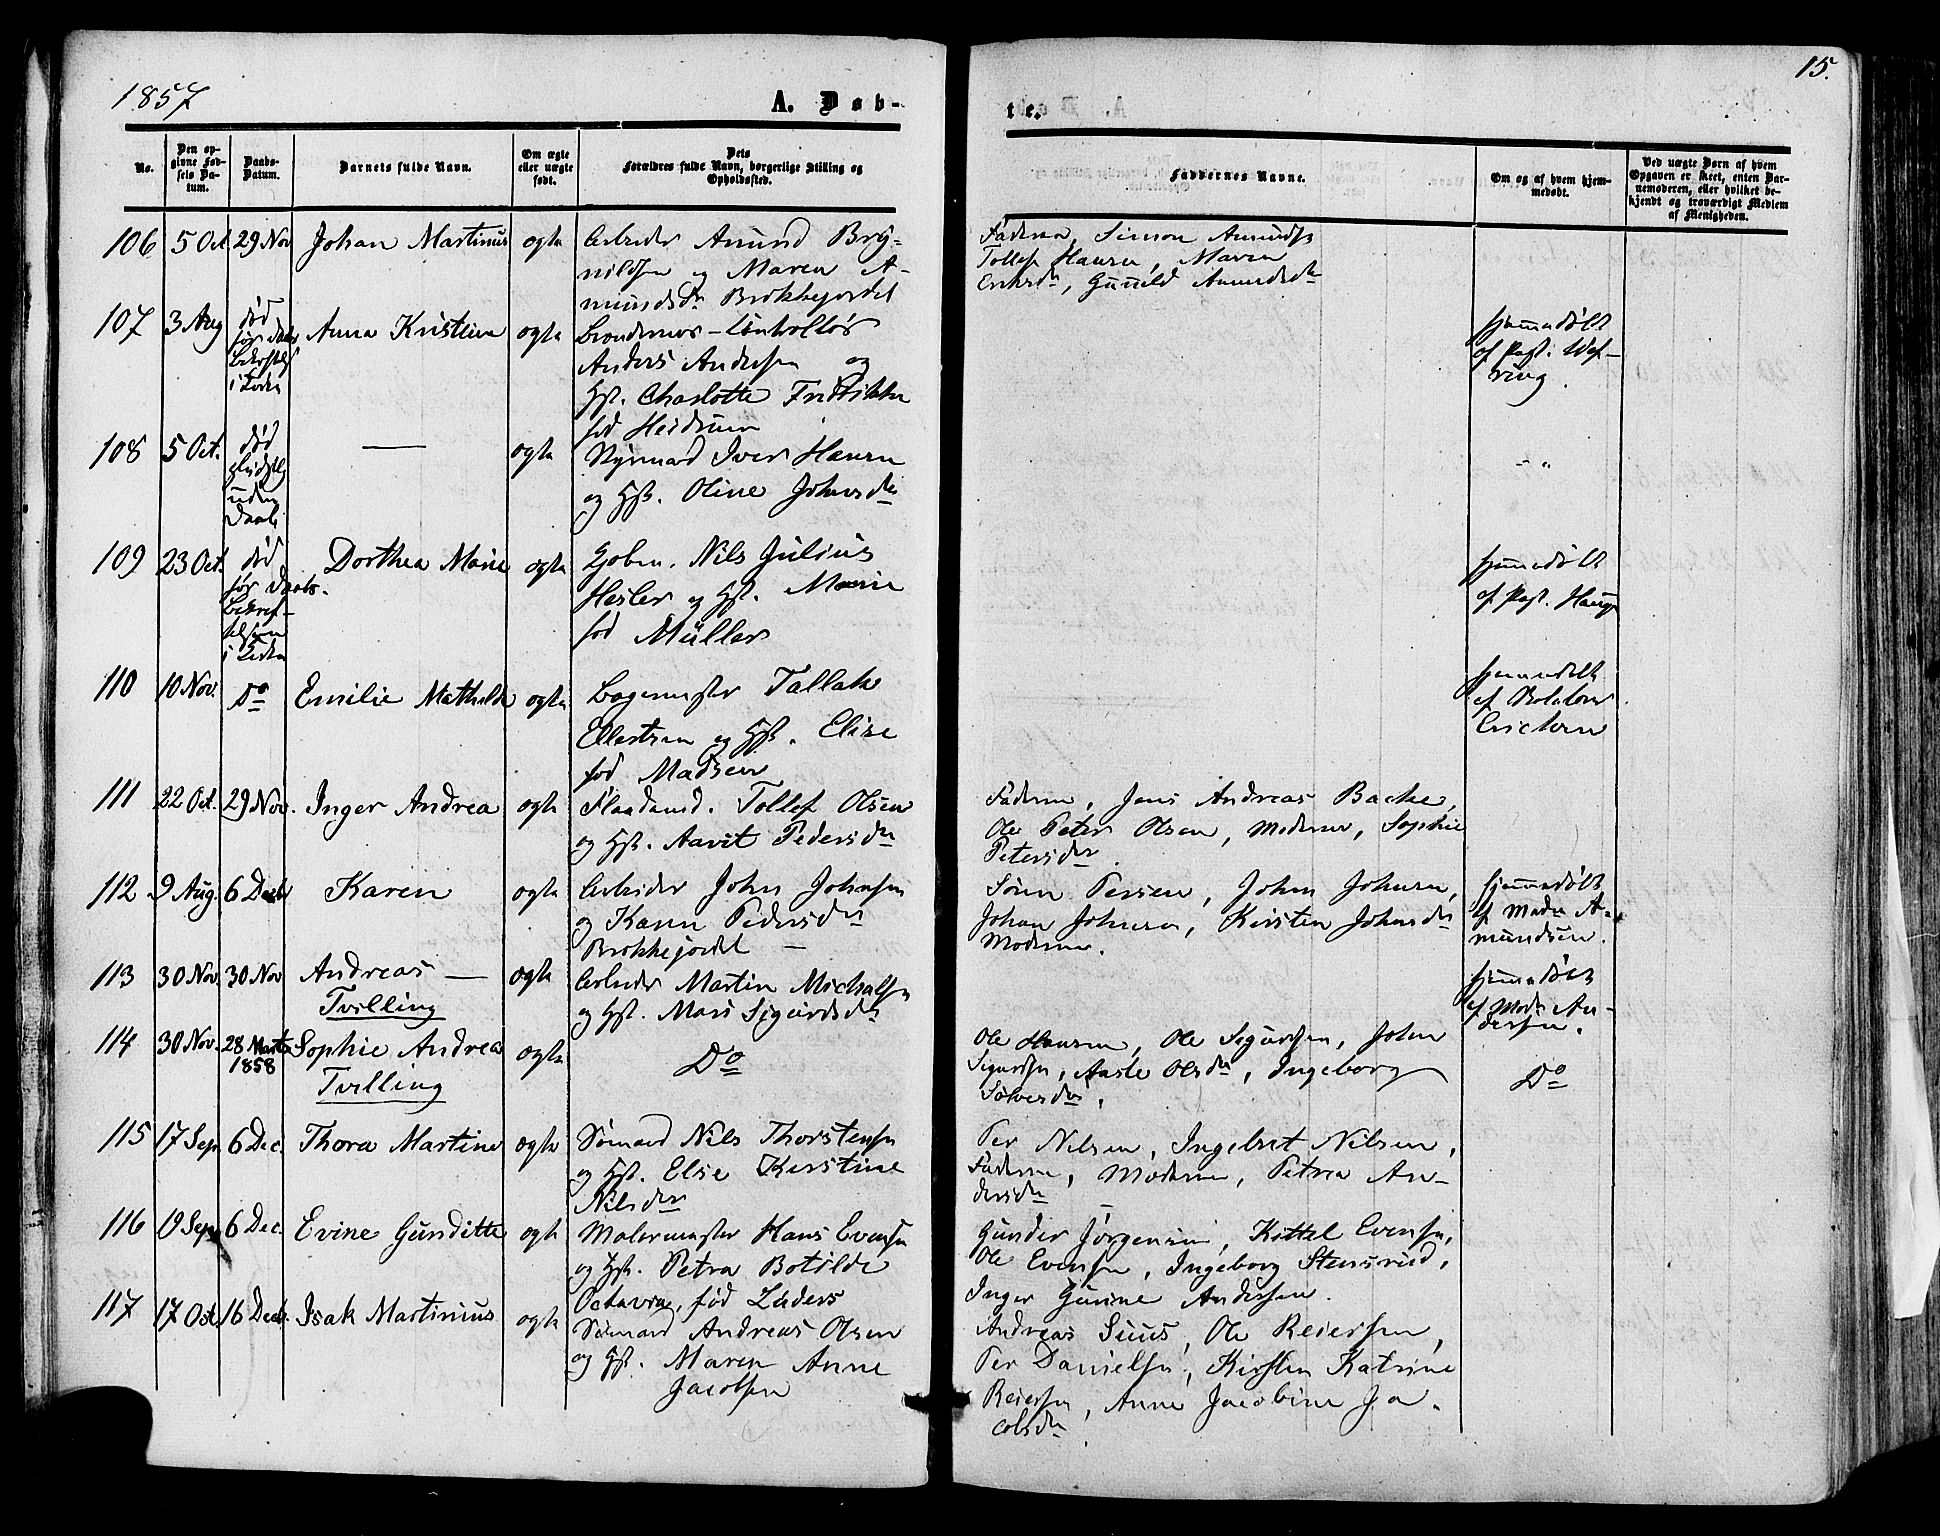 1857
A. Døb-
te.
15.
No.
Den op-
givne Fød-
sels Da-
tum.
Daabs-
Datum.
Barnets fulde Navn.
Om ægte
eller uægte
født.
Dets
Forældres fulde Navn, borgerlige Stilling og
Opholdssted.
Faddernes Navne.
Om og af hvem hjem-
medøbt.
Ved uægte Børn af hvem
Opgaven er skeet, enten Bar-
nemoderen, eller hvilket be-
kjendt og troværdigt Medlem
af Menigheden.
106 5 Oct 29 Nov Johan Martinus ægte Arbeider Amund Bry-
nildsen og Maren A-
mundsdr Brokkejordet
Faderen, Simon Amundsen
Tollef Hansen, Maren
Eriksdr, Gunild Amundsdr
107 3 Aug død
før Daabs
bekræftels
i Kirken
Anna Kristine ægte Brændevins-Controllør
Anders Andersen og
Hst. Charlotte Fredrikke
fød Heidmann
hjemmedøbt
af Past. Wef-
ring.
108 5 Oct. død
uden
Daab
— ægte Styrmand Iver Hansen
og Hst. Oline Johnsdr
- "
109 23 Oct. død
før Daabs-
bekræf-
telsen
i Kirken
Dorthea Marie ægte Kjøbm. Nils Julius
Hesler og Hst. Marie
fød Müller
hjemmedøbt
af Past. Hauge
110 10 Nov. Do Emilie Mathilde ægte Bagermester Tallak
Ellestsen og Hst. Elise
fød Madsen
hjemmedøbt
af
Ericksen
111 22 Oct. 29 Nov. Inger Andrea ægte Tollef Olsen
og Hst. Aavit Pedersdr
Faderen, Jens Andreas Backe,
Ole Peter Olsen, Moderen, Sophie
Petersdr
112 9 Aug. 6 Decbr Karen ægte Arbeider John Johnsen
og Karen Pedersdr
Brokkejordet —
Søren Persen, John Johnsen,
Johan Johnsen, Kirsten Johnsdr
Moderen.
hjemmedøbt
af Madm A-
mundsen.
113 30 Nov. 30 Nov Andreas —
Tvilling
ægte Arbeider Martin Michalsen
og Hst. Mari Sigurdsdr
hjemmedøbt
af Mad. An-
dersen.
114 30 Nov. 28 Marts
1858
Sophie Andrea
Tvilling
ægte Do
Ole Hansen, Ole Sigurdsen, John
Sigurdsen, Aaste Olsdr, Ingeborg
Sølversdr,
Do
115 17 Sep. 6 Dec. Thora Martine ægte Sømand Nils Thorstensen
og Hst. Else Kirstine
Nilsdr
Per Nilsen, Ingebret Nilsen,
Faderen, Moderen, Petrea An-
dersdr
116 19 Sep. 6 Dec. Evine Gunditte ægte Malermester Hans Evensen
og Hst. Petra Botilde
Octavia, fød Lüders
Gunder Jørgensen, Kittel Evensen,
Ole Evensen, Ingeborg Stensrud,
Inger Gurine Andersen.
117 17 Oct. 16 Decbr. Isak Martinius ægte Sømand Andreas Olsen
og Hst. Maren Anne
Jacobsen
Andreas Suus, Ole Reiersen,
Per Danielsen, Kirsten Katrine
Reiersen, Anne Jacobine Ja-
cobsdr